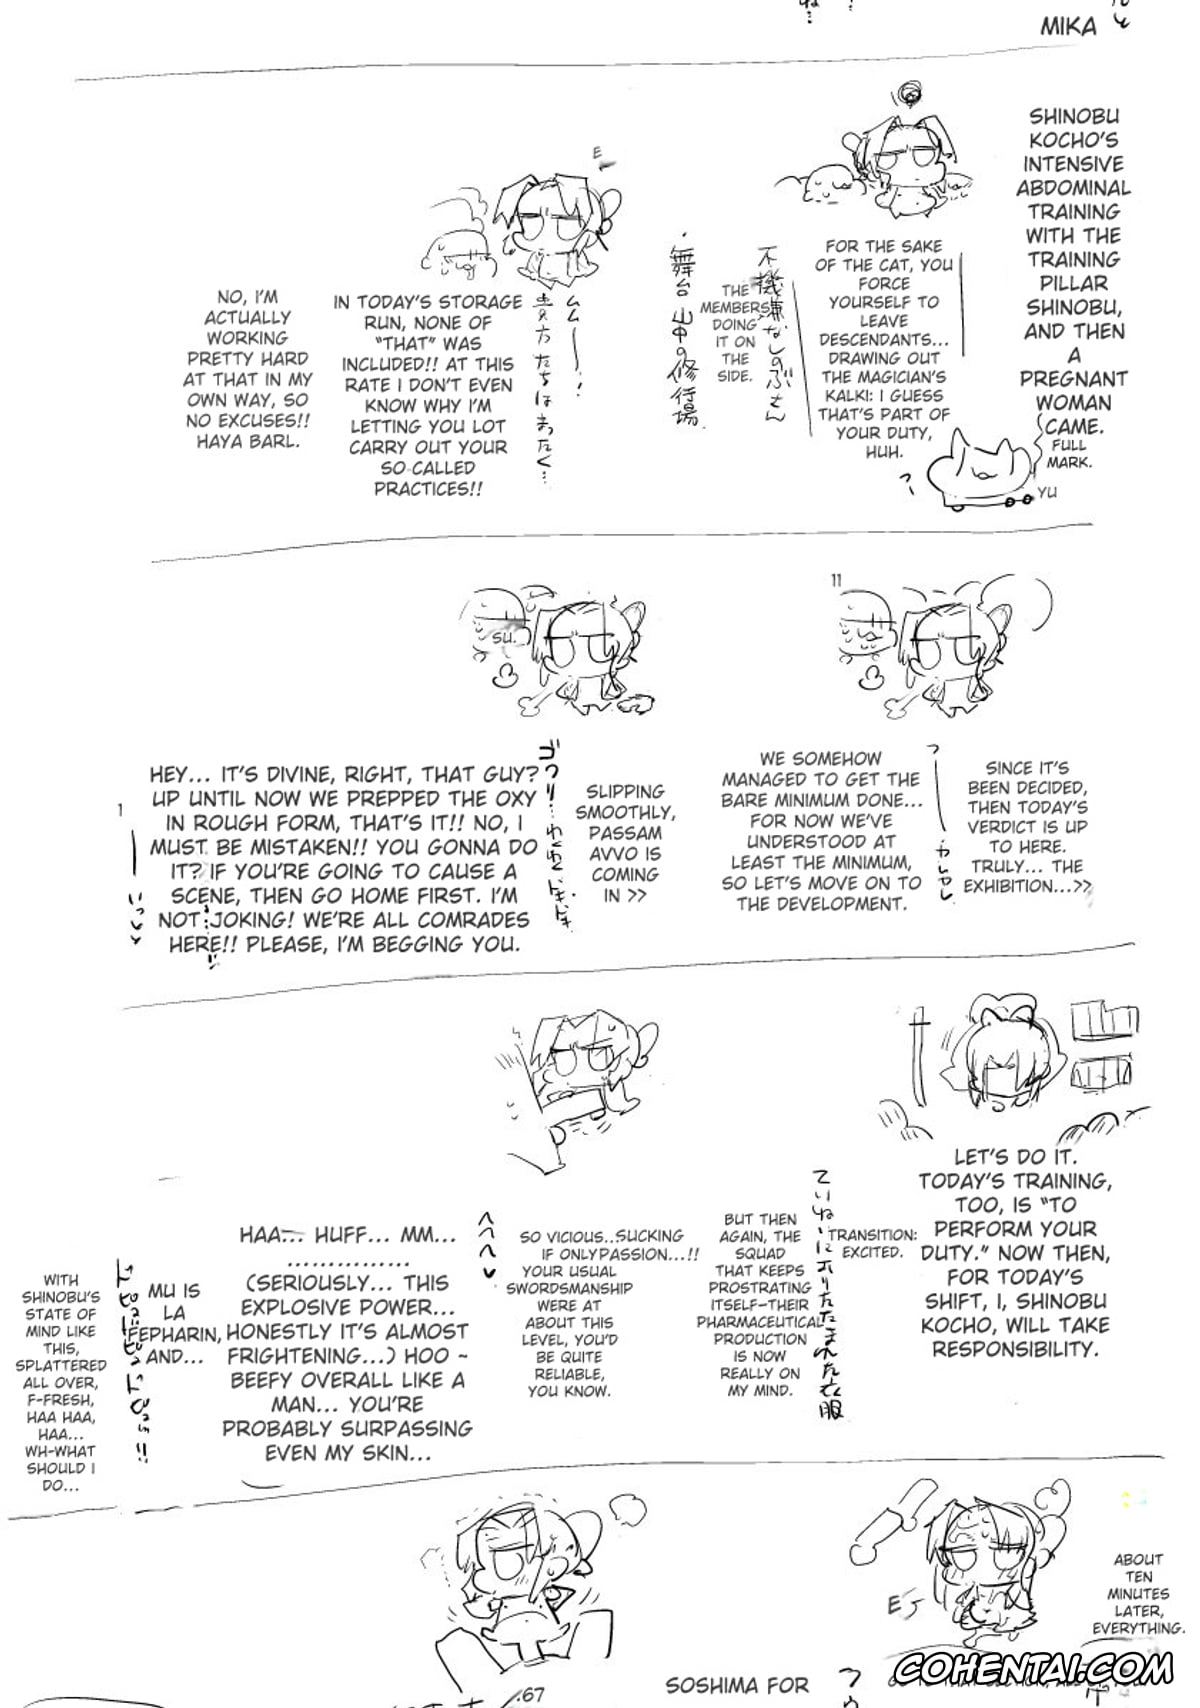 MIKA
SHINOBU
KOCHO'S
INTENSIVE
ABDOMINAL
TRAINING
WITH THE
TRAINING
PILLAR
SHINOBU,
AND THEN
A
PREGNANT
WOMAN
CAME.
FULL
MARK.
YU
FOR THE SAKE
OF THE CAT, YOU
FORCE
YOURSELF TO
LEAVE
DESCENDANTS...
DRAWING OUT
THE MAGICIAN'S
KALKI: I GUESS
THAT'S PART OF
YOUR DUTY,
HUH.
不機嫌なしのぶさん
THE
MEMBERS
DOING
IT ON
THE
SIDE.
・舞台 山中の修行場.
E
ムム――!
貴方たちはまったく…
IN TODAY'S STORAGE
RUN, NONE OF
"THAT" WAS
INCLUDED!! AT THIS
RATE I DON'T EVEN
KNOW WHY I'M
LETTING YOU LOT
CARRY OUT YOUR
SO-CALLED
PRACTICES!!
NO, I'M
ACTUALLY
WORKING
PRETTY HARD
AT THAT IN MY
OWN WAY, SO
NO EXCUSES!!
HAYA BARL.
11
SINCE IT'S
BEEN DECIDED,
THEN TODAY'S
VERDICT IS UP
TO HERE.
TRULY... THE
EXHIBITION...>>
WE SOMEHOW
MANAGED TO GET THE
BARE MINIMUM DONE...
FOR NOW WE'VE
UNDERSTOOD AT
LEAST THE MINIMUM,
SO LET'S MOVE ON TO
THE DEVELOPMENT.
SU.
SLIPPING
SMOOTHLY,
PASSAM
AVVO IS
COMING
IN >>
HEY... IT'S DIVINE, RIGHT, THAT GUY?
UP UNTIL NOW WE PREPPED THE OXY
IN ROUGH FORM, THAT'S IT!! NO, I
MUST BE MISTAKEN!! YOU GONNA DO
IT? IF YOU'RE GOING TO CAUSE A
SCENE, THEN GO HOME FIRST. I'M
NOT JOKING! WE'RE ALL COMRADES
HERE!! PLEASE, I'M BEGGING YOU.
1
LET'S DO IT.
TODAY'S TRAINING,
TOO, IS "TO
PERFORM YOUR
DUTY." NOW THEN,
FOR TODAY'S
SHIFT, I, SHINOBU
KOCHO, WILL TAKE
RESPONSIBILITY.
TRANSITION:
EXCITED.
ていねいにおりたたまれた衣服
BUT THEN
AGAIN, THE
SQUAD
THAT KEEPS
PROSTRATING
ITSELF—THEIR
PHARMACEUTICAL
PRODUCTION
IS NOW
REALLY ON
MY MIND.
SO VICIOUS...SUCKING
IF ONLY PASSION...!!
YOUR USUAL
SWORDSMANSHIP
WERE AT
ABOUT THIS
LEVEL, YOU'D
BE QUITE
RELIABLE,
YOU KNOW.
HAA... HUFF... MM...
...............
(SERIOUSLY... THIS
EXPLOSIVE POWER...
HONESTLY IT'S ALMOST
FRIGHTENING...) HOO ~
BEEFY OVERALL LIKE A
MAN... YOU'RE
PROBABLY SURPASSING
EVEN MY SKIN...
MU IS
LA
FEPHARIN,
AND...
WITH
SHINOBU'S
STATE OF
MIND LIKE
THIS,
SPLATTERED
ALL OVER,
F-FRESH,
HAA HAA,
HAA...
WH-WHAT
SHOULD I
DO...
ABOUT
TEN
MINUTES
LATER,
EVERYTHING.
E
SOSHIMA FOR
.67
COHENTAI.COM